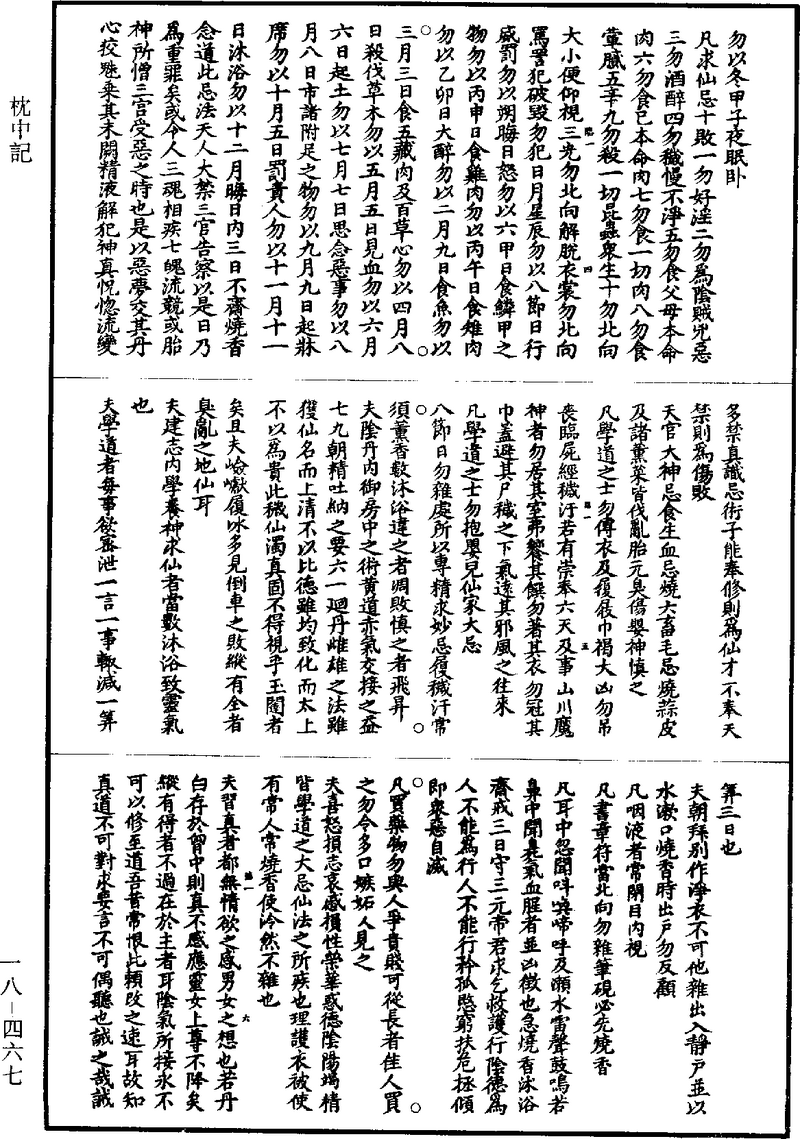 勿以冬甲子夜眠卧
凡求仙忌十敗一勿好淫二勿為陰賊兇惡
三勿酒醉四勿穢慢不淨五勿食父母本命
肉六勿食已本命肉七勿食一切肉八勿食
葷膩五辛九勿殺一切昆蟲衆生十勿北向
大小便仰視三光勿北向解脫衣裳勿北向
罵詈犯破毀勿犯日月星辰勿以八節日行
威罰勿以朔晦日怒勿以六甲日食鱗甲之
物勿以丙申日食雞肉勿以丙午日食雉肉
勿以乙卯日大醉勿以二月九日食魚勿以
三月三日食五藏肉及百草心勿以四月八
日殺伐草木勿以五月五日見血勿以六月
六日起土勿以七月七日思念惡事勿以八
月八日市諸附足之物勿以九月九日起牀
席勿以十月五日罰責人勿以十一月十一
日沐浴勿以十二月晦日內三日不齋燒香
念道此忌法天人大禁三官告察以是日乃
為重罪矣或令人三魂相疾七魄流競或胎
神所憎三宮受惡之時也是以惡夢交其丹
心狡魅乘其未闢精液解犯神真怳惚流變
多禁真識忌術子能奉修則為仙才不奉天
禁則為傷敗
天官大神忌食生血忌燒六畜毛忌燒蒜皮
及諸薰菜皆伐亂胎元臭傷嬰神慎之
凡學道之士勿傳衣及履屐巾褐大凶勿吊
喪臨屍經穢汙若有崇奉六天及事山川魔
神者勿居其室弗饗其饌勿著其衣勿冠其
巾蓋避其尸穢之下氣遠其邪風之往來
凡學道之士勿抱嬰兒仙家大忌
八節日勿雜處所以專精求妙忌履穢汙常
須薰香數沐浴違之者凋敗慎之者飛昇
夫陰丹內御房中之術黃道赤氣交接之益
七九朝精吐納之要六一迴丹雌雄之法雖
獲仙名而上清不以比德雖均致化而太上
不以為貴此穢仙濁真固不得視乎玉闥者
矣且夫嶮巇履冰多見倒車之敗縱有全者
臭亂之地仙耳
夫建志內學養神求仙者當數沐浴致靈氣
也
夫學道者每事欲密泄一言一事輙減一筭
筭三日也
夫朝拜別作淨衣不可他雜出入靜戶並以
水漱口燒香時出戶勿反顧
凡咽液者常閉目內視
凡書章符當北向勿雜筆硯必先燒香
凡耳中忽聞呌喚啼呼及瀨水雷聲鼓鳴若
鼻中聞臭氣血腥者並凶徵也急燒香沐浴
齋戒三日守三元帝君求乞救護行陰德為
人不能為行人不能行矜孤愍窮扶危拯傾
即衆惡自滅
凡買藥物勿與人爭貴賤可從長者佳人買
之勿令多口嫉妬人見之
夫喜怒損志哀慼損性榮華惑德陰陽竭精
皆學道之大忌仙法之所疾也理護衣被使
有常人常燒香使泠然不雜也
夫習真者都無情欲之感男女之想也若丹
白存於胷中則真不感應靈女上尊不降矣
縱有得者不過在於主者耳陰氣所接永不
可以修至道吾昔常恨此賴改之速耳故知
真道不可對求要言不可偶聽也誡之哉誡
枕中記
一八-四六七